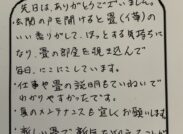 先日は、ありがとうございました。
玄関の戸を開けると畳(イ草)の
いい香りがして、ほっとする気持ちに
なり、畳の部屋を覗き込んで
毎日、にこにこしています。
・仕事や畳の説明もていねいで
わかりやすかったです。
・真のメンテナンスも宜しくお願いします
新しい畳で新年